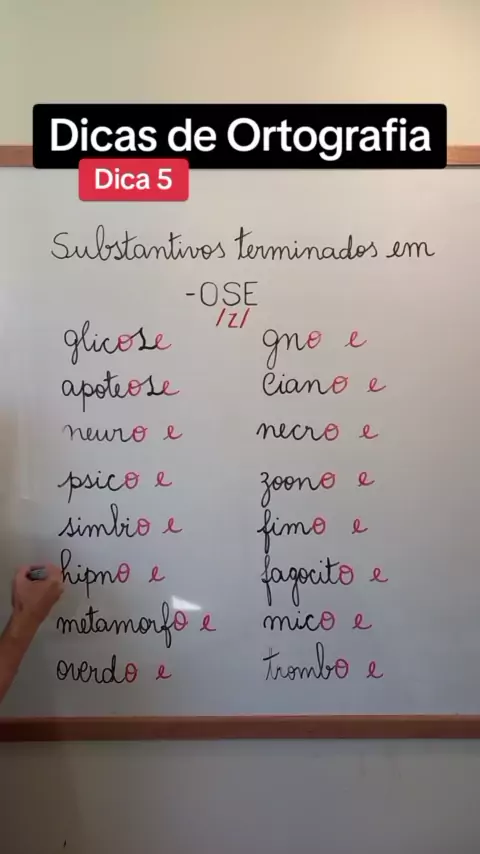 Dicas de Ortografia
Dica 5
Substantivos terminados em
-OSE
/z/
glicose
apoteose
neuro e
psico e
simbio e
hipno e
metamorfo e
overdo e
gno e
ciano e
necro e
zoono e
fimo e
fagocito e
mico e
trombo e